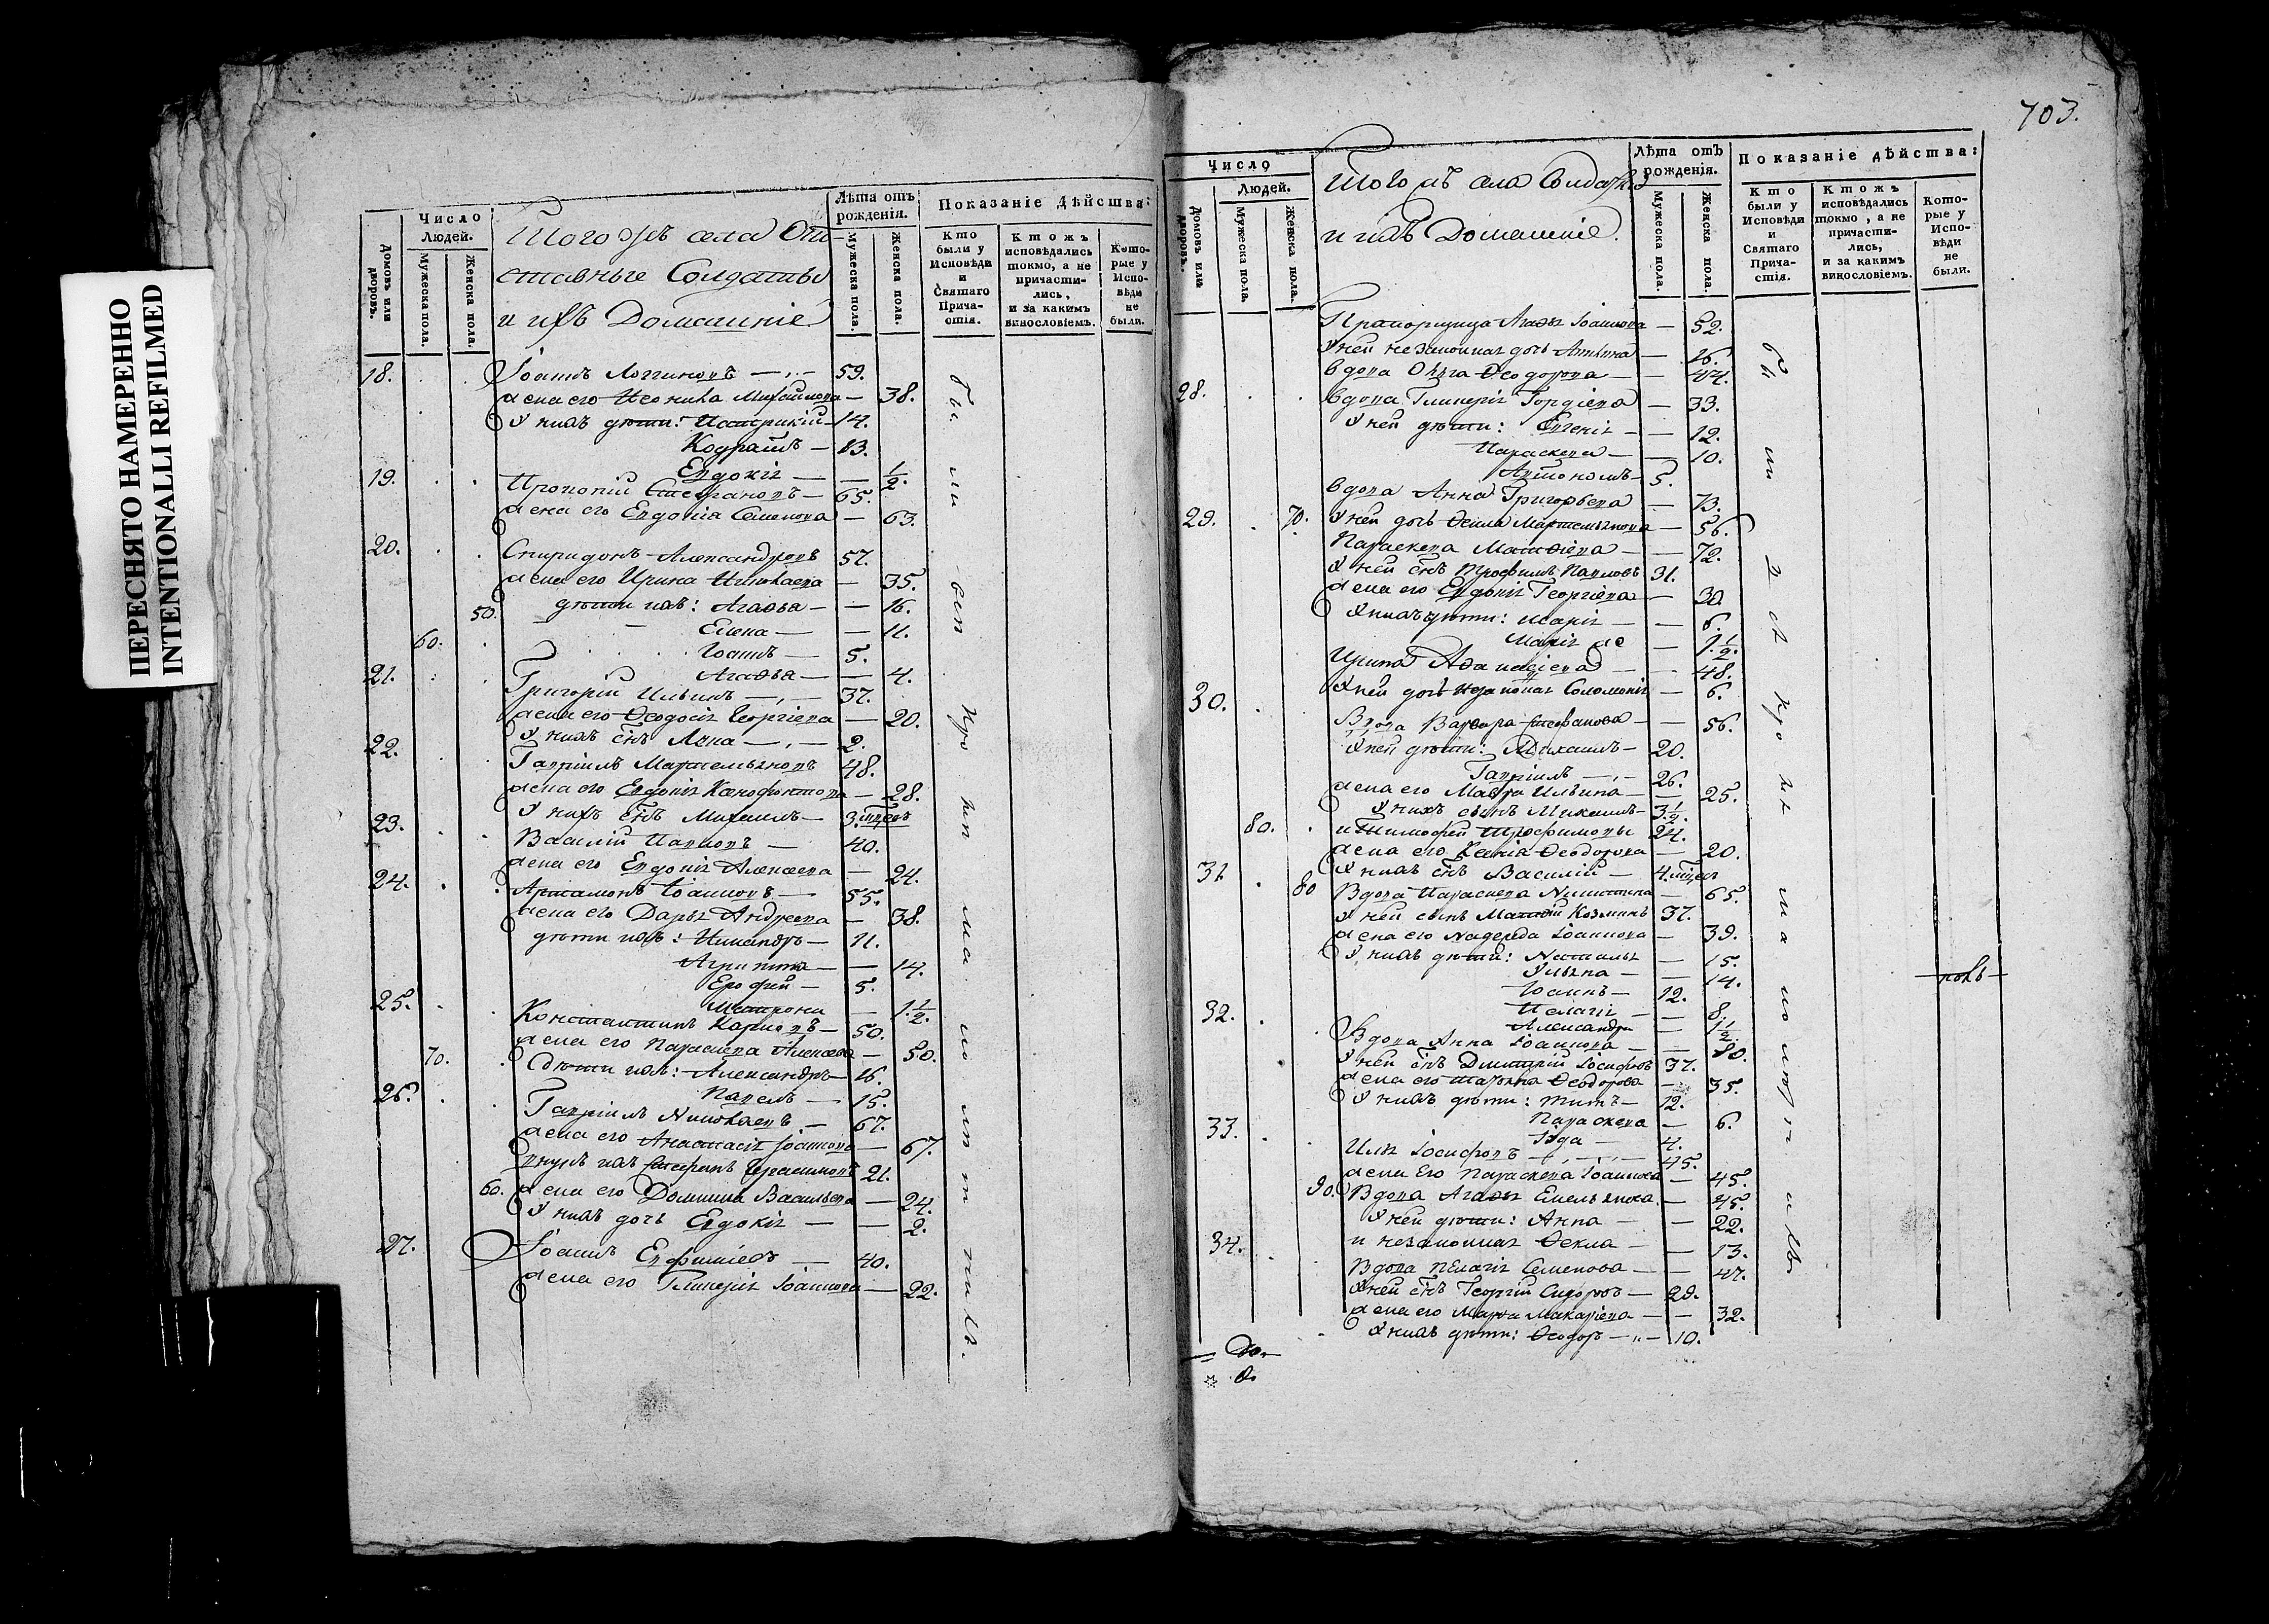 ПЕРЕСНЯТО НАМЕРЕННО
INTENTIONALLI REFILMED
Число
Людей.
Домовъ или дворовъ.
Мужеска пола.
Женска пола.
Того жъ села От-
ставные Солдаты
и ихъ Домашніе
Лѣта отъ рожденія.
Мужеска пола.
Женска пола.
Показаніе дѣйства:
Кто были у Исповѣди и Святаго Причастія.
Ктожъ исповѣдались токмо, а не причастились, и за какимъ винословіемъ.
Которые у Исповѣди не были.
18. Іоаннъ Логгиновъ 59.
жена его Михайлова 38.
у нихъ дѣти: 14.
Кодратъ 13.
Евдокія 1/2.
19. Прокопій Стефановъ 65.
жена его Евдокія Семенова 63.
20. Спиридонъ Александровъ 57.
жена его Ирина Николаева 35.
50. дѣти ихъ: Агафья 16.
Елена 11.
60. Іоаннъ 5.
Агафья 4.
21. Григорій Ильинъ 37.
жена его Ѳеодосія Георгіева 20.
у нихъ снъ Лука 2.
22. Гавріилъ Мартемьяновъ 48.
жена его Евдокія Ксенофонтова 28.
у нихъ снъ Михаилъ 3.
23. Василій Карповъ 40.
жена его Евдокія Алексеева 24.
24. Артамонъ Іоанновъ 55.
жена его Дарья Андреева 38.
дѣти ихъ: Никандръ 11.
Агрипина 14.
Ерофей 5.
Матрона 1 1/2.
25. Константинъ Карповъ 50.
жена его Параскева Алексеева 50.
70. дѣти ихъ: Александръ 16.
Павелъ 15.
26. Гавріилъ Николаевъ 67.
жена его Анастасія Іоаннова 67.
внукъ ихъ Стефанъ 21.
60. жена его Домника Васильева 24.
у нихъ дочь Евдокія 2.
27. Іоаннъ Евфиміевъ 40.
жена его Гликерія Іоаннова 22.
703.
Число
Людей.
Домовъ или дворовъ.
Мужеска пола.
Женска пола.
Того жъ села Солдатки
и ихъ Домашніе.
Лѣта отъ рожденія.
Мужеска пола.
Женска пола.
Показаніе дѣйства:
Кто были у Исповѣди и Святаго Причастія.
Ктожъ исповѣдались токмо, а не причастились, и за какимъ винословіемъ.
Которые у Исповѣди не были.
Прапорщица Агафья Іоаннова 52.
у ней незаконная дочь 16.
вдова Ольга Ѳеодорова 44.
28. вдова Гликерія Гордіева 33.
у ней дѣти: Евгенія 12.
Параскева 10.
Автономъ 5.
вдова Анна Григорьева 73.
29. 70. у ней дочь Мартемьянова 56.
Параскева Матѳіева 72.
у ней снъ Трофимъ Павловъ 31.
жена его Евдокія Георгіева 30.
у нихъ дѣти: Марія 6.
Марія же 1 1/2.
Ирина 48.
30. у ней дочь Соломонія 6.
Вдова Варвара Стефанова 56.
у ней дѣти: Михаилъ 20.
Гавріилъ 26.
жена его Мавра Ильина 25.
у нихъ сынъ Михаилъ 3 1/2.
80. и Тимофей Трофимовы 24.
жена его Ксенія Ѳеодорова 20.
31. у нихъ снъ Василій 4.
80 Вдова Параскева Никитина 65.
у ней сынъ Матѳій Козминъ 37.
жена его Надежда Іоаннова 39.
у нихъ дѣти: Наталья 15.
Ульяна 14.
Іоаннъ 12.
32. Пелагія 8.
Александра 1 1/2
Вдова Анна Іоаннова 80.
у ней снъ Димитрій Іосифовъ 37.
жена его Татьяна Ѳеодорова 35.
у нихъ дѣти: Титъ 12.
Параскева 6.
33. Іуда 4.
Илья Іосифовъ 45.
жена его Параскева Іоаннова 45.
90. Вдова Агафья Емельянова 45.
у ней дѣти: Анна 22.
34. и незаконная Ѳекла 13.
Вдова Пелагія Семенова 47.
у ней снъ Георгій Сидоровъ 29.
жена его Марѳа Макаріева 32.
у нихъ дѣти: Ѳеодоръ 10.